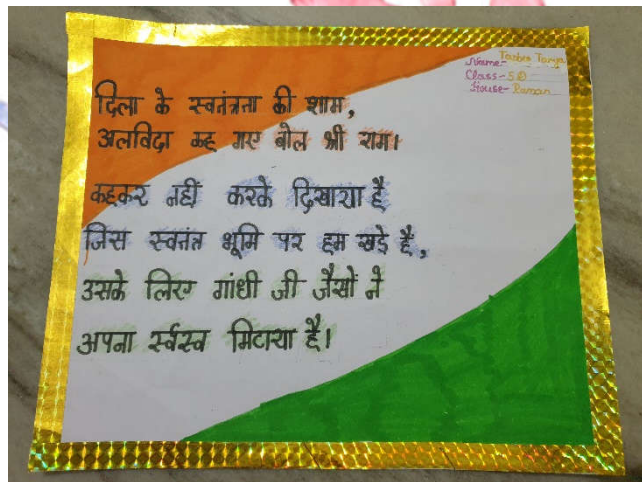 Name- Tasbee Tanja
Class- 5D
House- Raman
दिला के स्वतंत्रता की शाम,
अलविदा कह गए बोल श्री राम।
कहकर नहीं करके दिखाया है
जिस स्वतंत्र भूमि पर हम खड़े है,
उसके लिए गांधी जी जैसों ने
अपना र्स्वस्व मिटाया है।